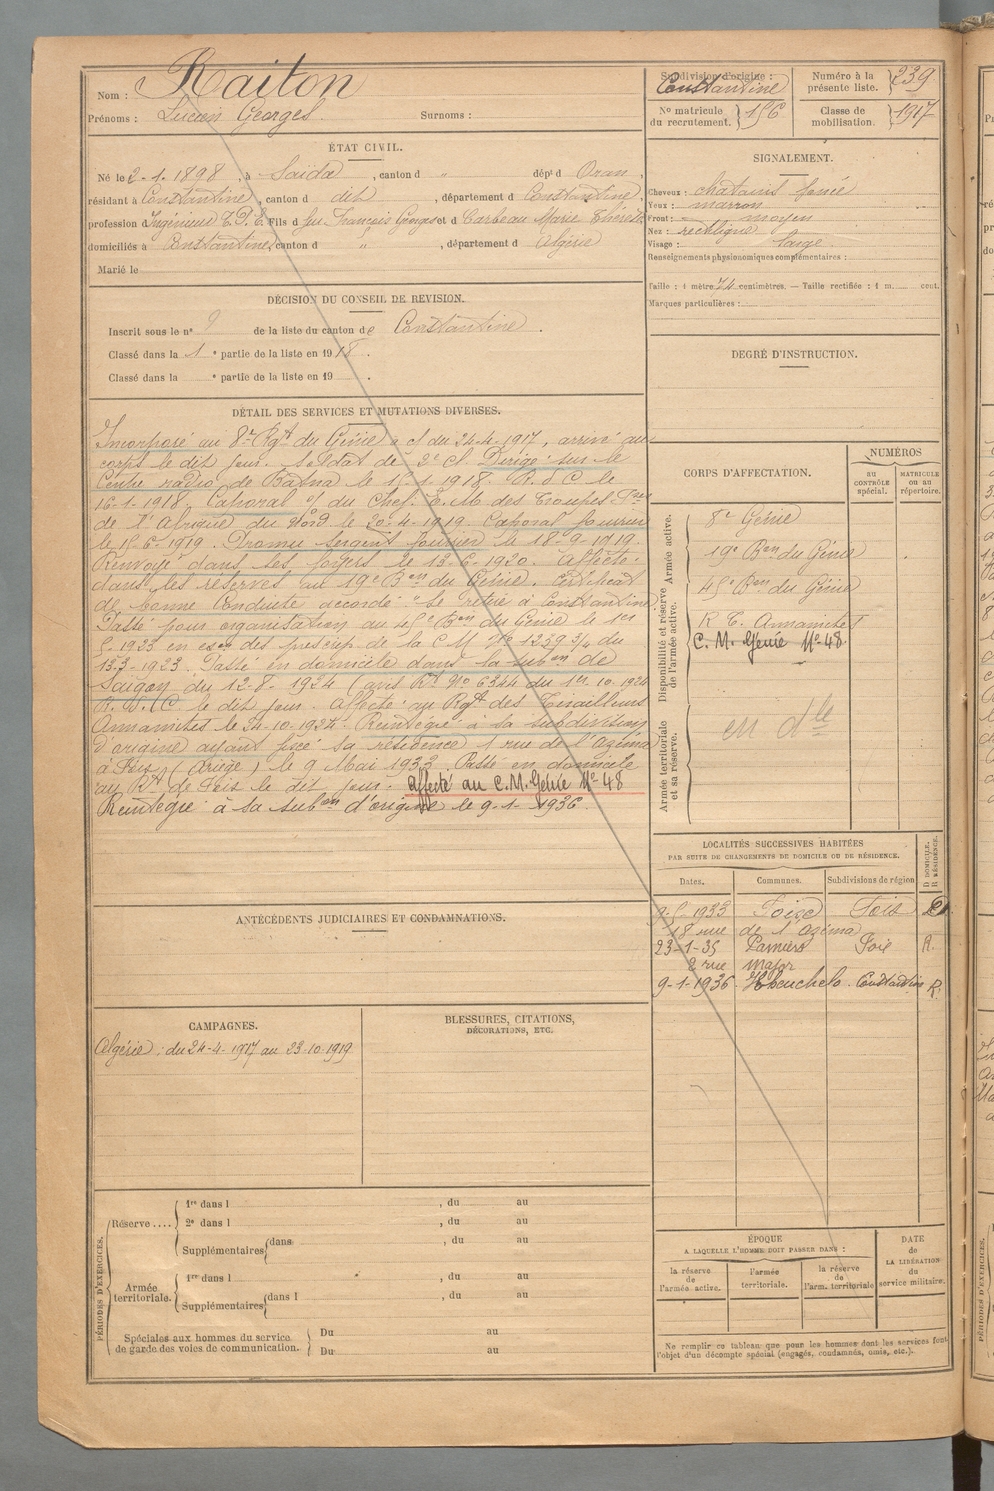 Nom : Raiton
Prénoms : Lucien Georges. Surnoms :
ÉTAT CIVIL.
Né le 2-1-1898, à Saïda, canton d " dépt d Oran,
résidant à Constantine, canton d dit, département d Constantine,
profession Ingénieur T.P.E. Fils d François Georges et d Carbeau Marie Thérèse
domiciliés à Constantine, canton d " , département d Algérie
Marié le
DÉCISION DU CONSEIL DE REVISION.
Inscrit sous le n° 9 de la liste du canton de Constantine.
Classé dans la 1 e partie de la liste en 1918.
Classé dans la e partie de la liste en 19 .
DÉTAIL DES SERVICES ET MUTATIONS DIVERSES.
Incorporé au 8e Rgt du Génie à c/ du 24-4-1917, arrivé au
corps le dit jour. Soldat de 2e cl. Dirigé sur le
Centre radio de Batna le 15-1-1918. R. d C. le
16-1-1918. Caporal o/ du Chef E. M des Troupes
de l'Afrique du Nord le 20-4-1919. Caporal fourrier
le 15-6-1919. Promu sergent fourrier le 18-9-1919.
Renvoyé dans ses foyers le 13-6-1920. Affecté
dans les réserves au 19e Bon du Génie. Certificat
de bonne Conduite accordé. Se retire à Constantine.
Passé pour organisation au 45e Bon du Génie le 1er
5-1923 en exon des prescrip de la C M No 12593/4 du
13-3-1923. Passé en domicile dans la subon de
Saïgon du 12-8-1924 (avis Rt No 6344 du 1er-10-1924
R. d C le dit jour. Affecté au Rgt des Tirailleurs
Annamites le 24-10-1924. Réintégré à la subdivision
d'origine ayant fixé sa résidence 1 rue de l'Azéma
à Foix (Ariège) le 9 Mai 1933. Passé en domicile
au Rt de Foix le dit jour. Affecté au C.M. Génie No 48
Réintégré à sa subon d'origine le 9-1-1936.
ANTÉCÉDENTS JUDICIAIRES ET CONDAMNATIONS.
CAMPAGNES.
Algérie : du 24-4-1917 au 23-10-1919
BLESSURES, CITATIONS,
DÉCORATIONS, ETC.
PÉRIODES D'EXERCICES.
Réserve....
1re dans l , du au
2e dans l , du au
Supplémentaires dans , du au
Armée
territoriale.
1re dans l , du au
Supplémentaires dans l , du au
Spéciales aux hommes du service
de garde des voies de communication.
Du au
Du au
Subdivision d'origine :
Constantine
Numéro à la
présente liste. 239
N° matricule
du recrutement. 156
Classe de
mobilisation. 1917
SIGNALEMENT.
Cheveux : chatains foncé
Yeux : marron
Front : moyen
Nez : rectiligne
Visage : large
Renseignements physionomiques complémentaires :
Taille : 1 mètre 74 centimètres. — Taille rectifiée : 1 m. cent.
Marques particulières :
DEGRÉ D'INSTRUCTION.
CORPS D'AFFECTATION.
NUMÉROS
au
CONTRÔLE
spécial.
MATRICULE
ou au
répertoire.
Armée active.
8e Génie
19e Bon du Génie
Disponibilité et réserve
de l'armée active.
45e Bon du Génie
R T. Annamites
C. M. Génie No 48
Armée territoriale
et sa réserve.
en dlle
LOCALITÉS SUCCESSIVES HABITÉES
PAR SUITE DE CHANGEMENTS DE DOMICILE OU DE RÉSIDENCE.
D DOMICILE.
R RÉSIDENCE.
Dates. Communes. Subdivisions de région
9-5-1933 Foix Foix D
18 rue de l'Azéma
23-1-35 Pamiers Foix R.
2 rue Major
9-1-1936 Khenchela Constantine R.
ÉPOQUE
A LAQUELLE L'HOMME DOIT PASSER DANS :
DATE
de
LA LIBÉRATION
du
service militaire.
la réserve
de
l'armée active.
l'armée
territoriale.
la réserve
de
l'arm. territoriale
Ne remplir ce tableau que pour les hommes dont les services font
l'objet d'un décompte spécial (engagés, condamnés, omis, etc.).